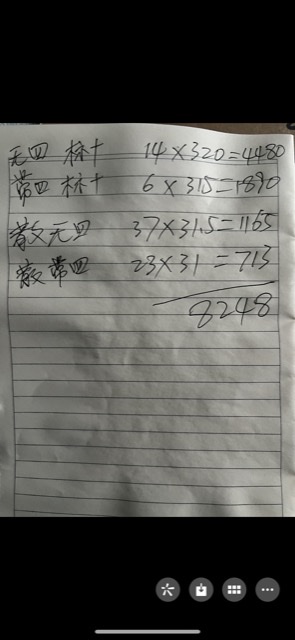 无四 杯十 14×320=4480
带四 杯十 6×315=1890
散无四 37×31.5=1165
散带四 23×31=713
8248